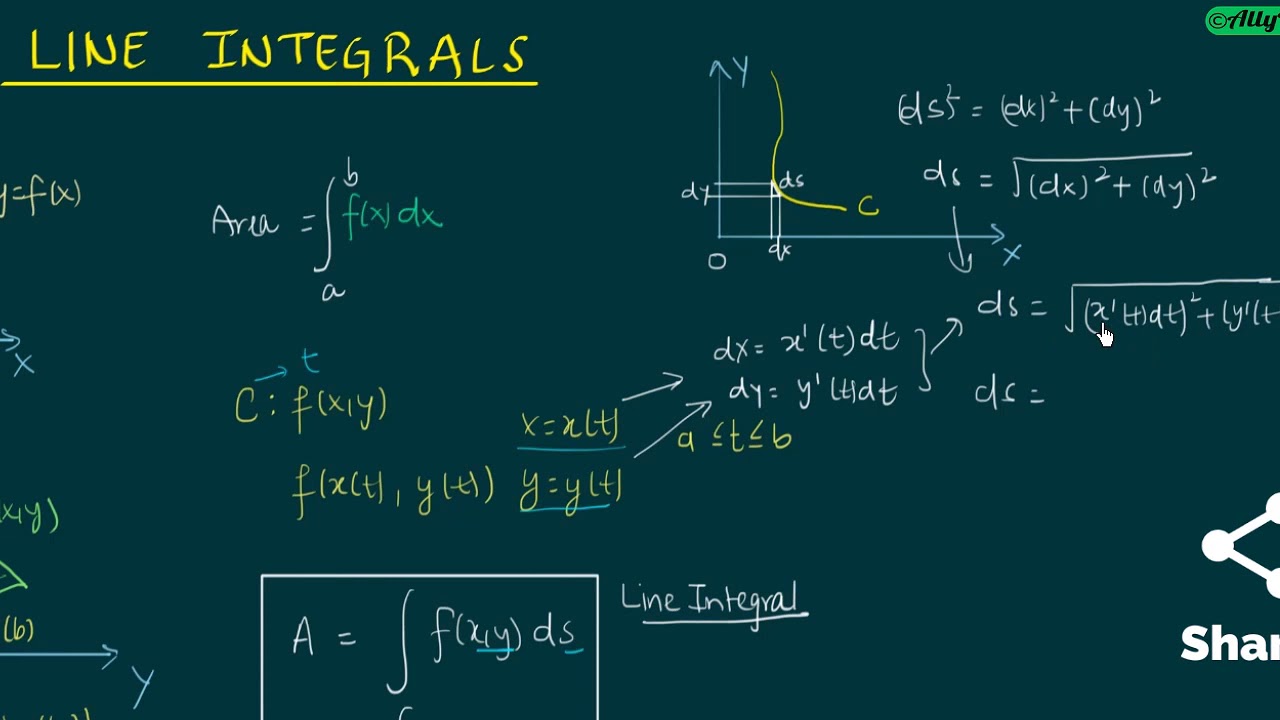 ©Ally
LINE INTEGRALS
y=f(x)
Area = ∫ₐᵇ f(x) dx
Y
dy
ds
C
O
dx
X
(ds)² = (dx)² + (dy)²
ds = √(dx)² + (dy)²
ds = √(x'(t)dt)² + (y'(t
dx = x'(t)dt
dy = y'(t)dt
ds =
X
t
C : f(x,y)
x = x(t)
a ≤ t ≤ b
f(x(t), y(t)) y = y(t)
x,y)
(b)
Y
A = ∫ f(x,y) ds
Line Integral
Shar